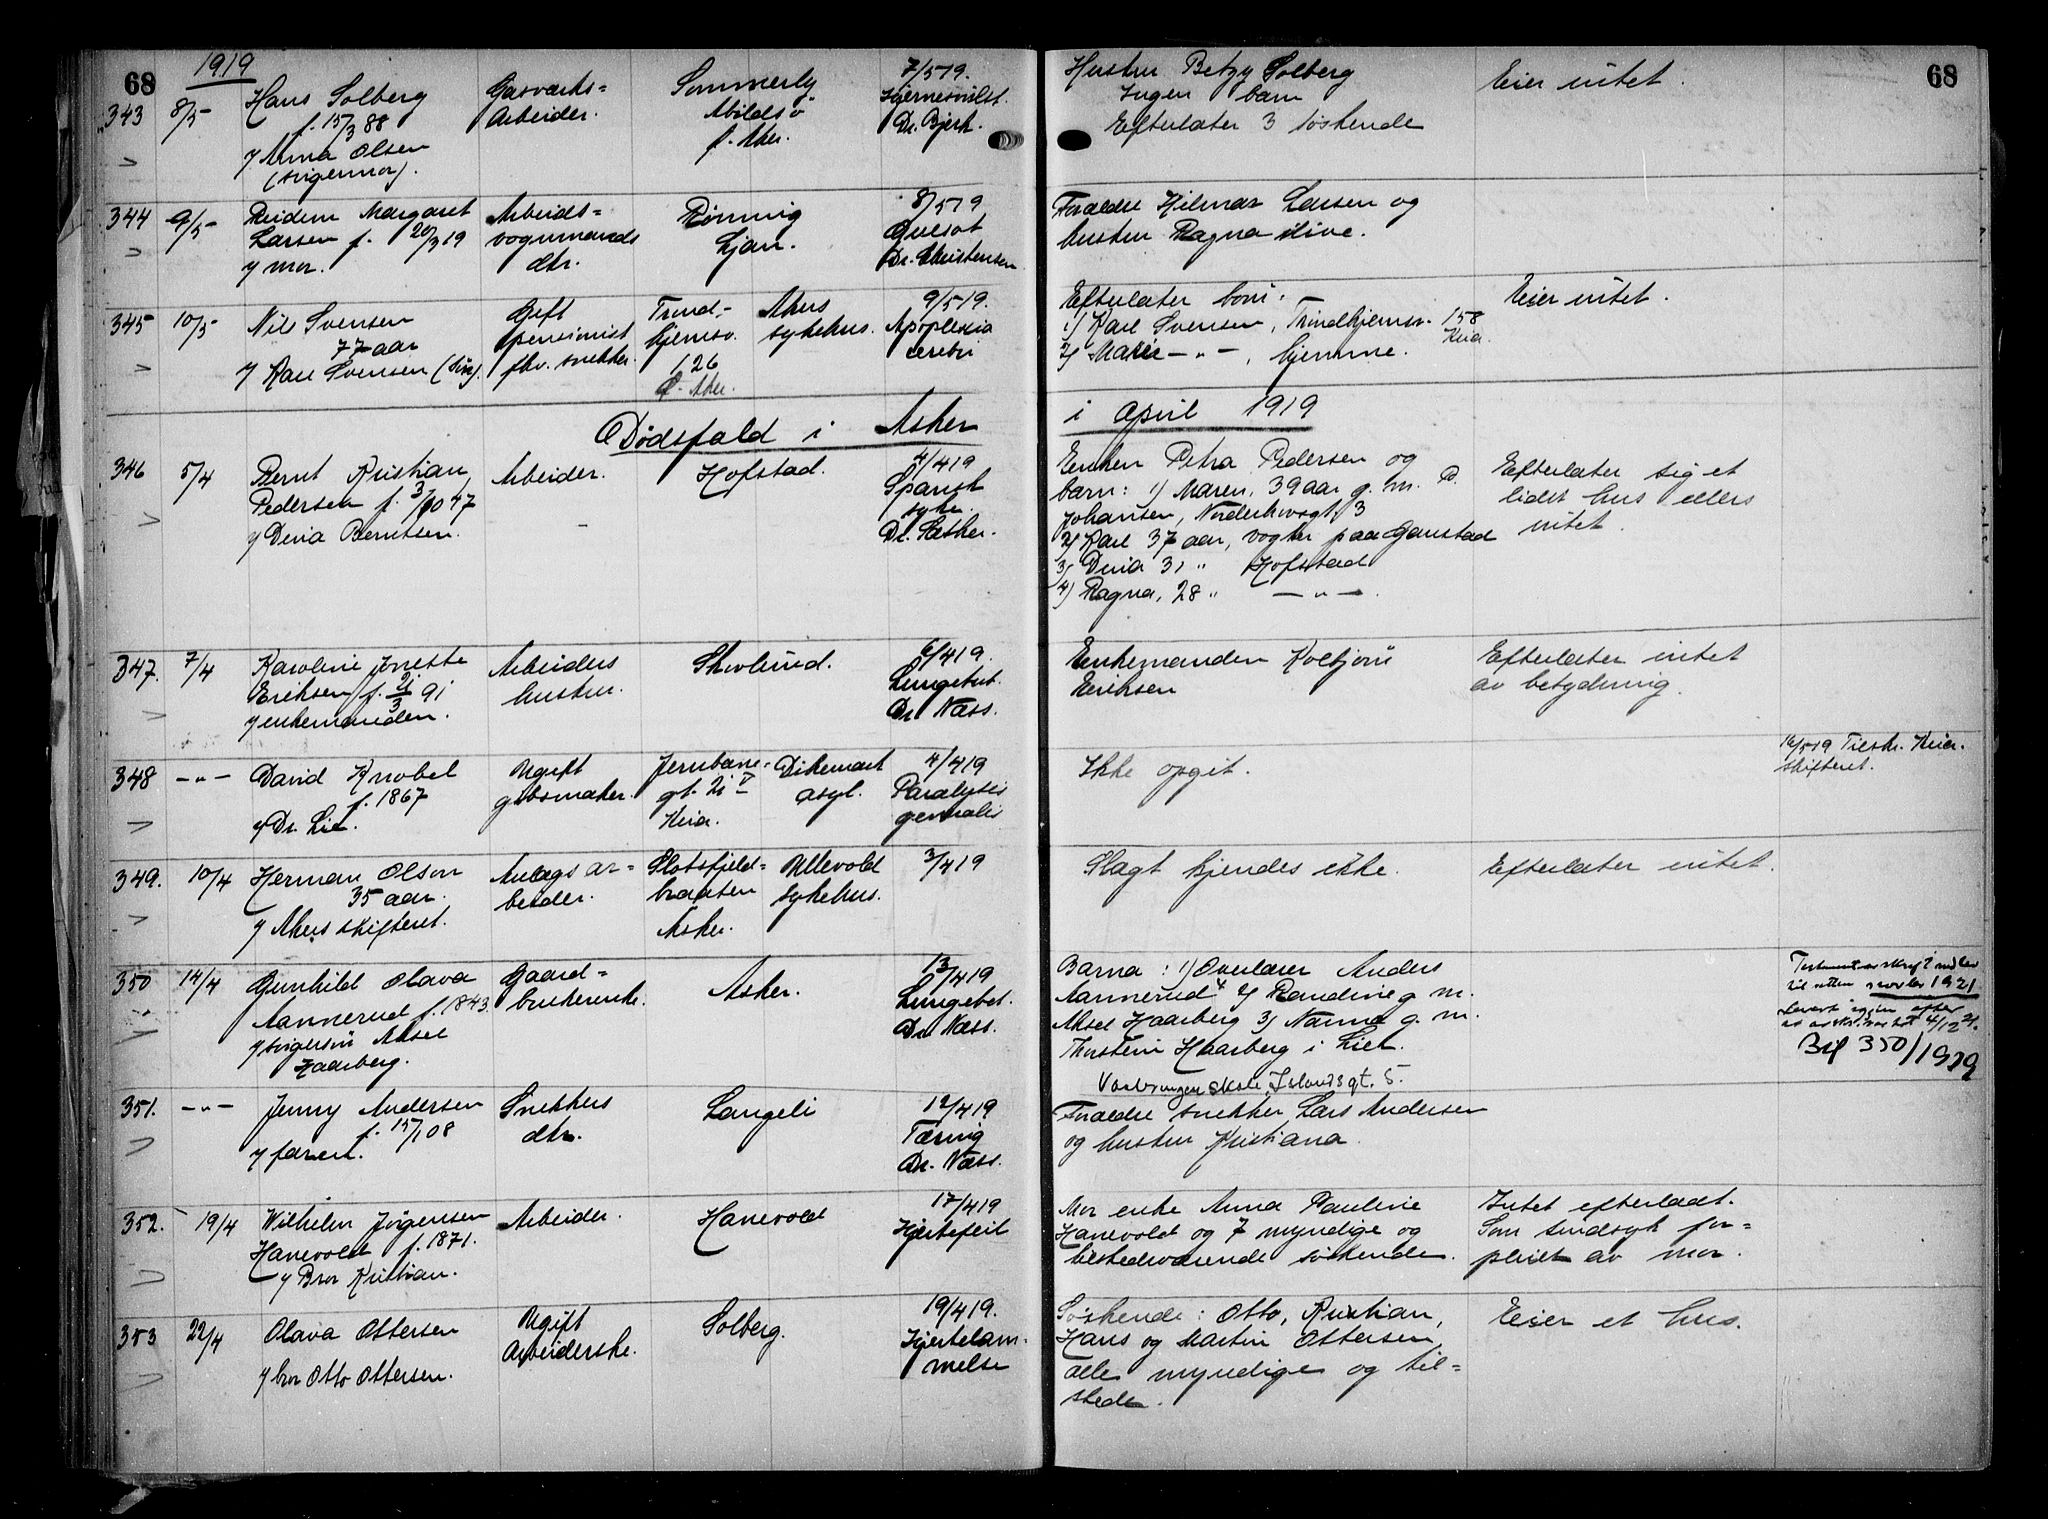 68
1919
343 8/5 Hans Solberg
f. 15/3 88
v/ Anna Olsen
(svigermor).
Gasverks=
arbeider.
Sommerly
Abildsø
f. Aker.
7/5 19.
Hjernesvulst.
Dr. Bjerk.
Hustru Betzy Solberg
Ingen barn
Efterlater 3 søskende
Eier intet.
68
344 9/5 Reidun Margaret
Larsen f. 20/3 19
v/ mor.
Arbeids=
vognmands
dtr.
Rønning
Ljan.
8/5 19
Dr. Christensen
Forældre Hilmar Larsen og
hustru Ragna ilive.
345 10/5 Nils Svensen
77 aar
v/ Karl Svensen (søn).
Gift
pensionist
fhv. snekker.
Trond=
hjemsv.
126
Ø. Aker.
Akers
sykehus.
9/5 19.
Apoplexia
cerebri
Efterlater barn:
1/ Karl Svensen, Trondhjemsv. 158
Kria.
2/ Marie -"-, hjemme.
Eier intet.
Dødsfald i Asker
i April 1919
346 5/4 Bernt Kristian
Pedersen f. 3/10 47
v/ Dina Berntsen.
Arbeider.
Hofstad.
4/4 19
Spansk
syke.
Dr. Sæther.
Enken Petra Pedersen og
barn: 1) Maren, 39 aar g. m. P.
Johansen, Norderhovsgt. 3
2/ Karl 37 aar, vogter paa Gaustad
3) Dina 31 " Hofstad
4) Ragna, 28 " -"-.
Efterlater sig et
lidet hus ellers
intet.
347. 7/4 Karoline Jonette
Eriksen f. 21/3 91
v/ enkemanden.
Arbeiders
hustru.
Skovlund.
6/4 19.
Lungebet.
Dr. Næss.
Enkemanden Kolbjørn
Eriksen
Efterlater intet
av betydning.
348 -"- David Knobel
f. 1867
v/ Dr. Lie.
Ugift
gibsmaker.
Jernbane=
gt. 21 V
Kria.
Dikemark
asyl.
4/4 19
Paralysis
generalis
Ikke opgit.
16/5 19 Tilskr. Kria.
skifteret.
349. 10/4 Herman Olson
35 aar.
v/ Akers skifteret.
Anlægsar=
beider.
Slotsfjeld=
braaten
Asker.
Ullevold
sykehus.
3/4 19
Slagt kjendes ikke.
Efterlater intet.
350 14/4 Gunhild Olava
Aannerud f. 1843.
v/ svigersøn Aksel
Haarberg.
Gaard=
brukerenke.
Asker.
13/4 19
Lungebet.
Dr. Næss.
Barna: 1) Overlærer Anders
Aannerud 2/ Randine g. m.
Aksel Haarberg 3) Nanna g. m.
Thorstein Haarberg i Lier.
Vaalerengen skole, Islandsgt. 5.
1921
4/12 21.
Bil 350/1919
351. -"- Jenny Andersen
f. 15/1 08
v/ faren.
Snekkers
dtr.
Langeli
12/4 19
Tæring
Dr. Næss.
Forældre snekker Lars Andersen
og hustru Kristiana.
352. 19/4 Wilhelm Jørgensen
Hanevold f. 1871.
v/ Bror Kristian.
Arbeider.
Hanevold
17/4 19
Hjertefeil
Mor enke Anna Pauline
Hanevold og 7 myndige og
tilstedeværende søskende.
Intet efterladt.
Som sindssyk for=
pleiet av mor.
353 22/4 Olava Ottersen
v/ bror Otto Ottersen.
Ugift
Arbeiderske.
Solberg.
19/4 19.
Hjertelam=
melse
Søskende: Otto, Kristian,
Hans og Martin Ottersen,
alle myndige og til=
stede.
Eier et hus.